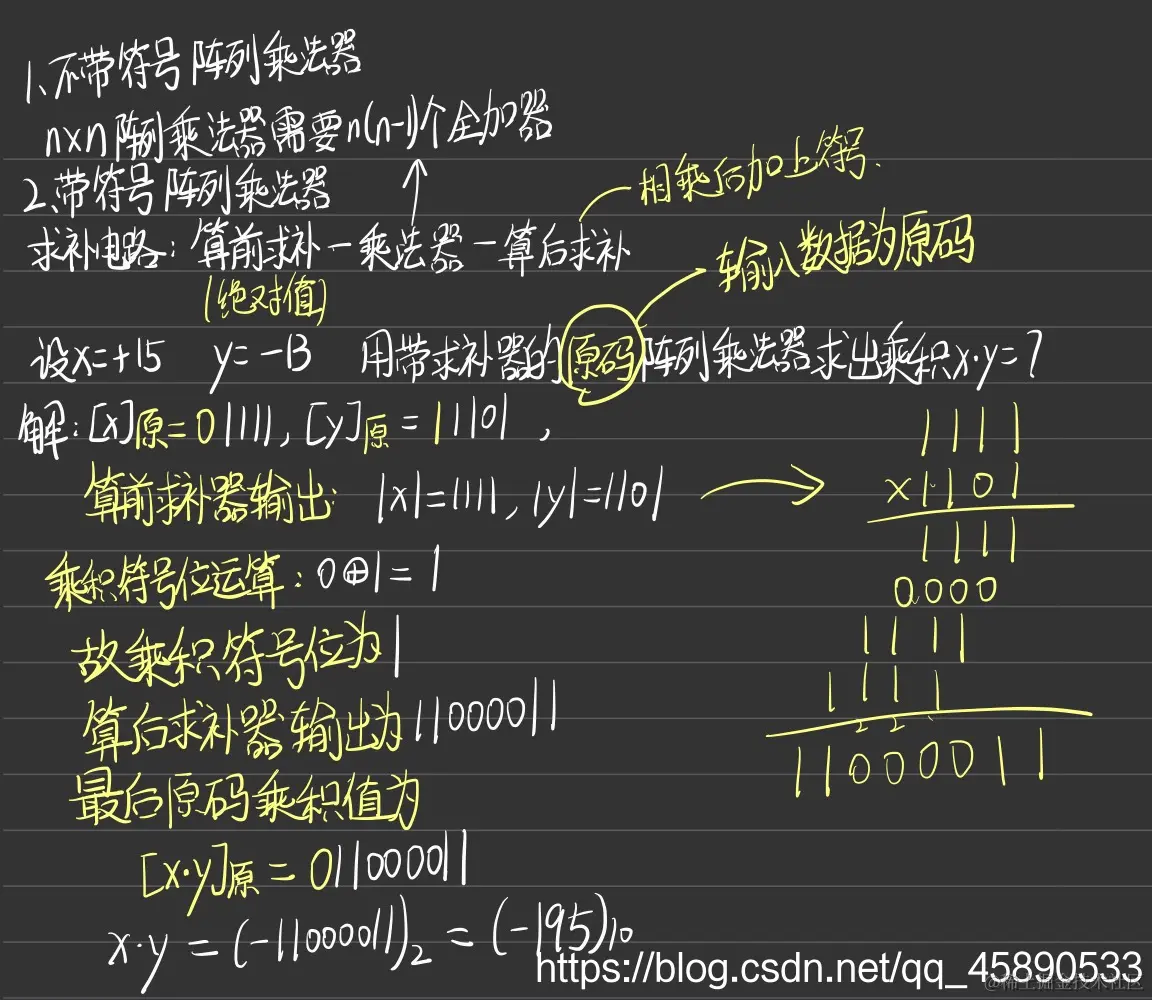 1、不带符号阵列乘法器
n×n阵列乘法器需要n(n-1)个全加器
2、带符号阵列乘法器
相乘后加上符号.
求补电路：算前求补－乘法器－算后求补
(绝对值)
输入数据为原码
设x=+15 y=-13 用带求补器的原码阵列乘法器求出乘积x·y=?
解:[x]原=01111, [y]原=11101,
算前求补器输出: |x|=1111, |y|=1101
乘积符号位运算: 0⊕1=1
故乘积符号位为1
算后求补器输出为11000011
最后原码乘积值为
[x·y]原=011000011
x·y=(-11000011)₂=(-195)₁₀
1111
×1101
1111
0000
1111
1111
11000011
https://blog.csdn.net/qq_45890533
@稀土掘金技术社区